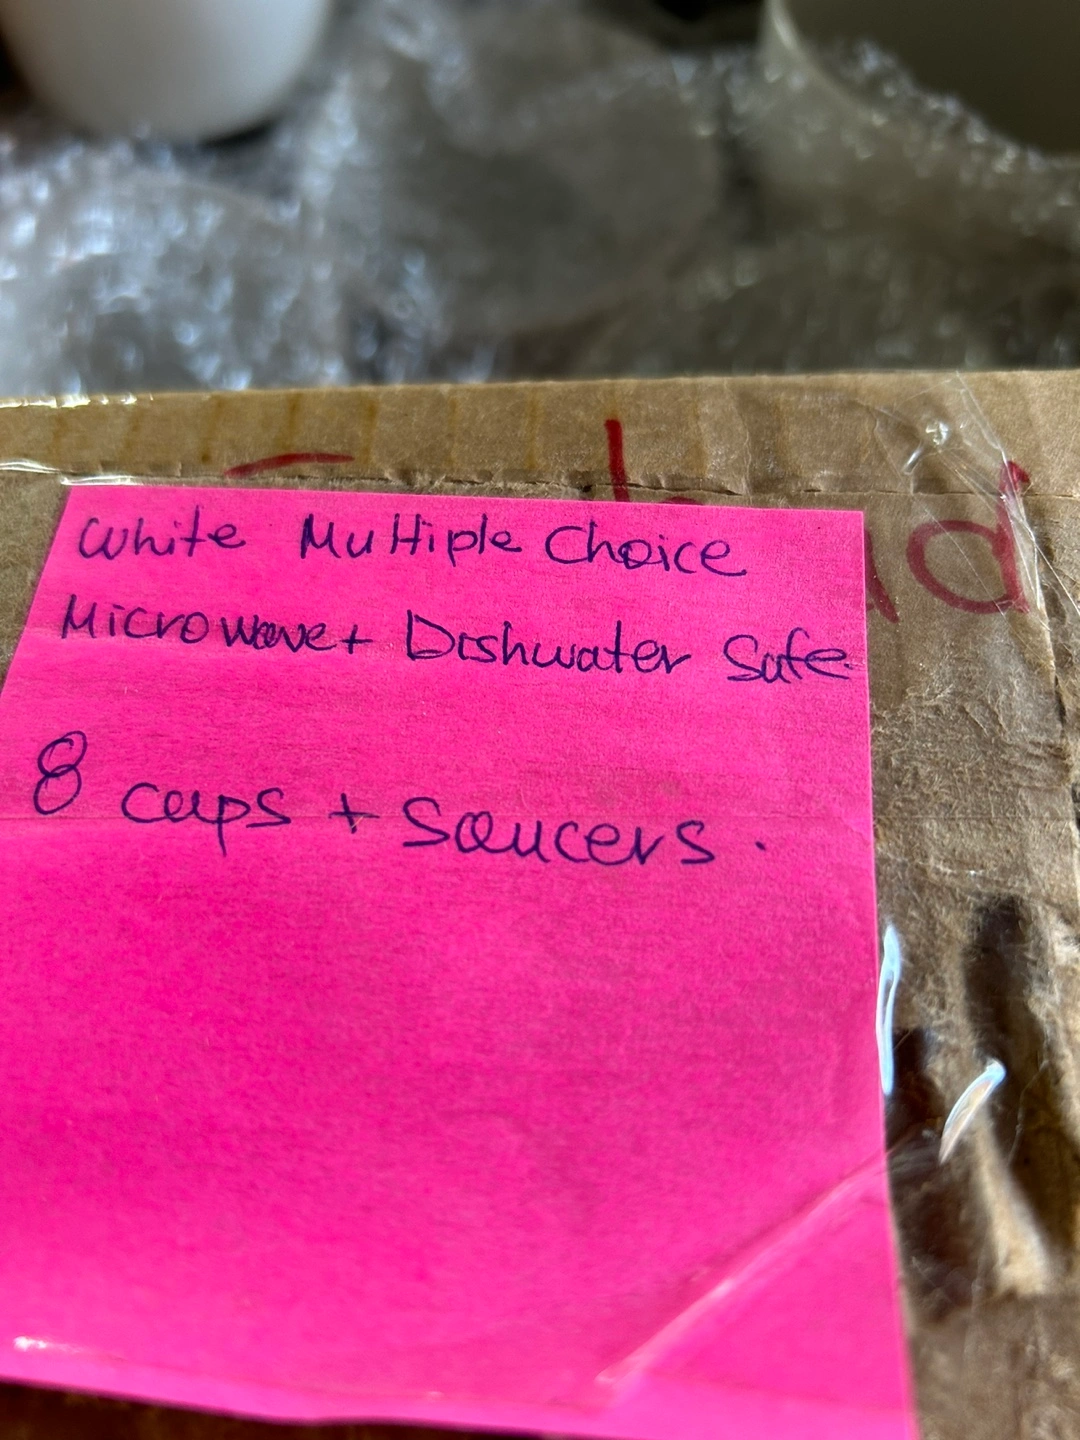 White Multiple Choice
Microwave + Dishwater Safe.
8 cups + saucers.